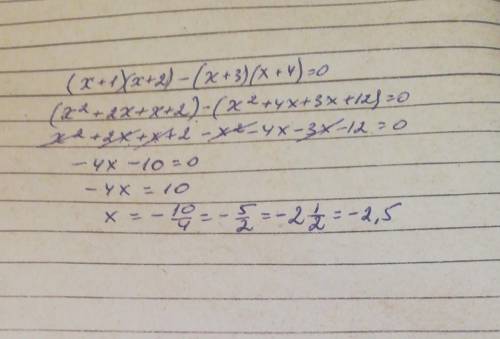 (x+1)(x+2)-(x+3)(x+4)=0
(x²+2x+x+2)-(x²+4x+3x+12)=0
x²+2x+x+2-x²-4x-3x-12=0
-4x-10=0
-4x=10
x=-10/4=-5/2=-2 1/2=-2,5